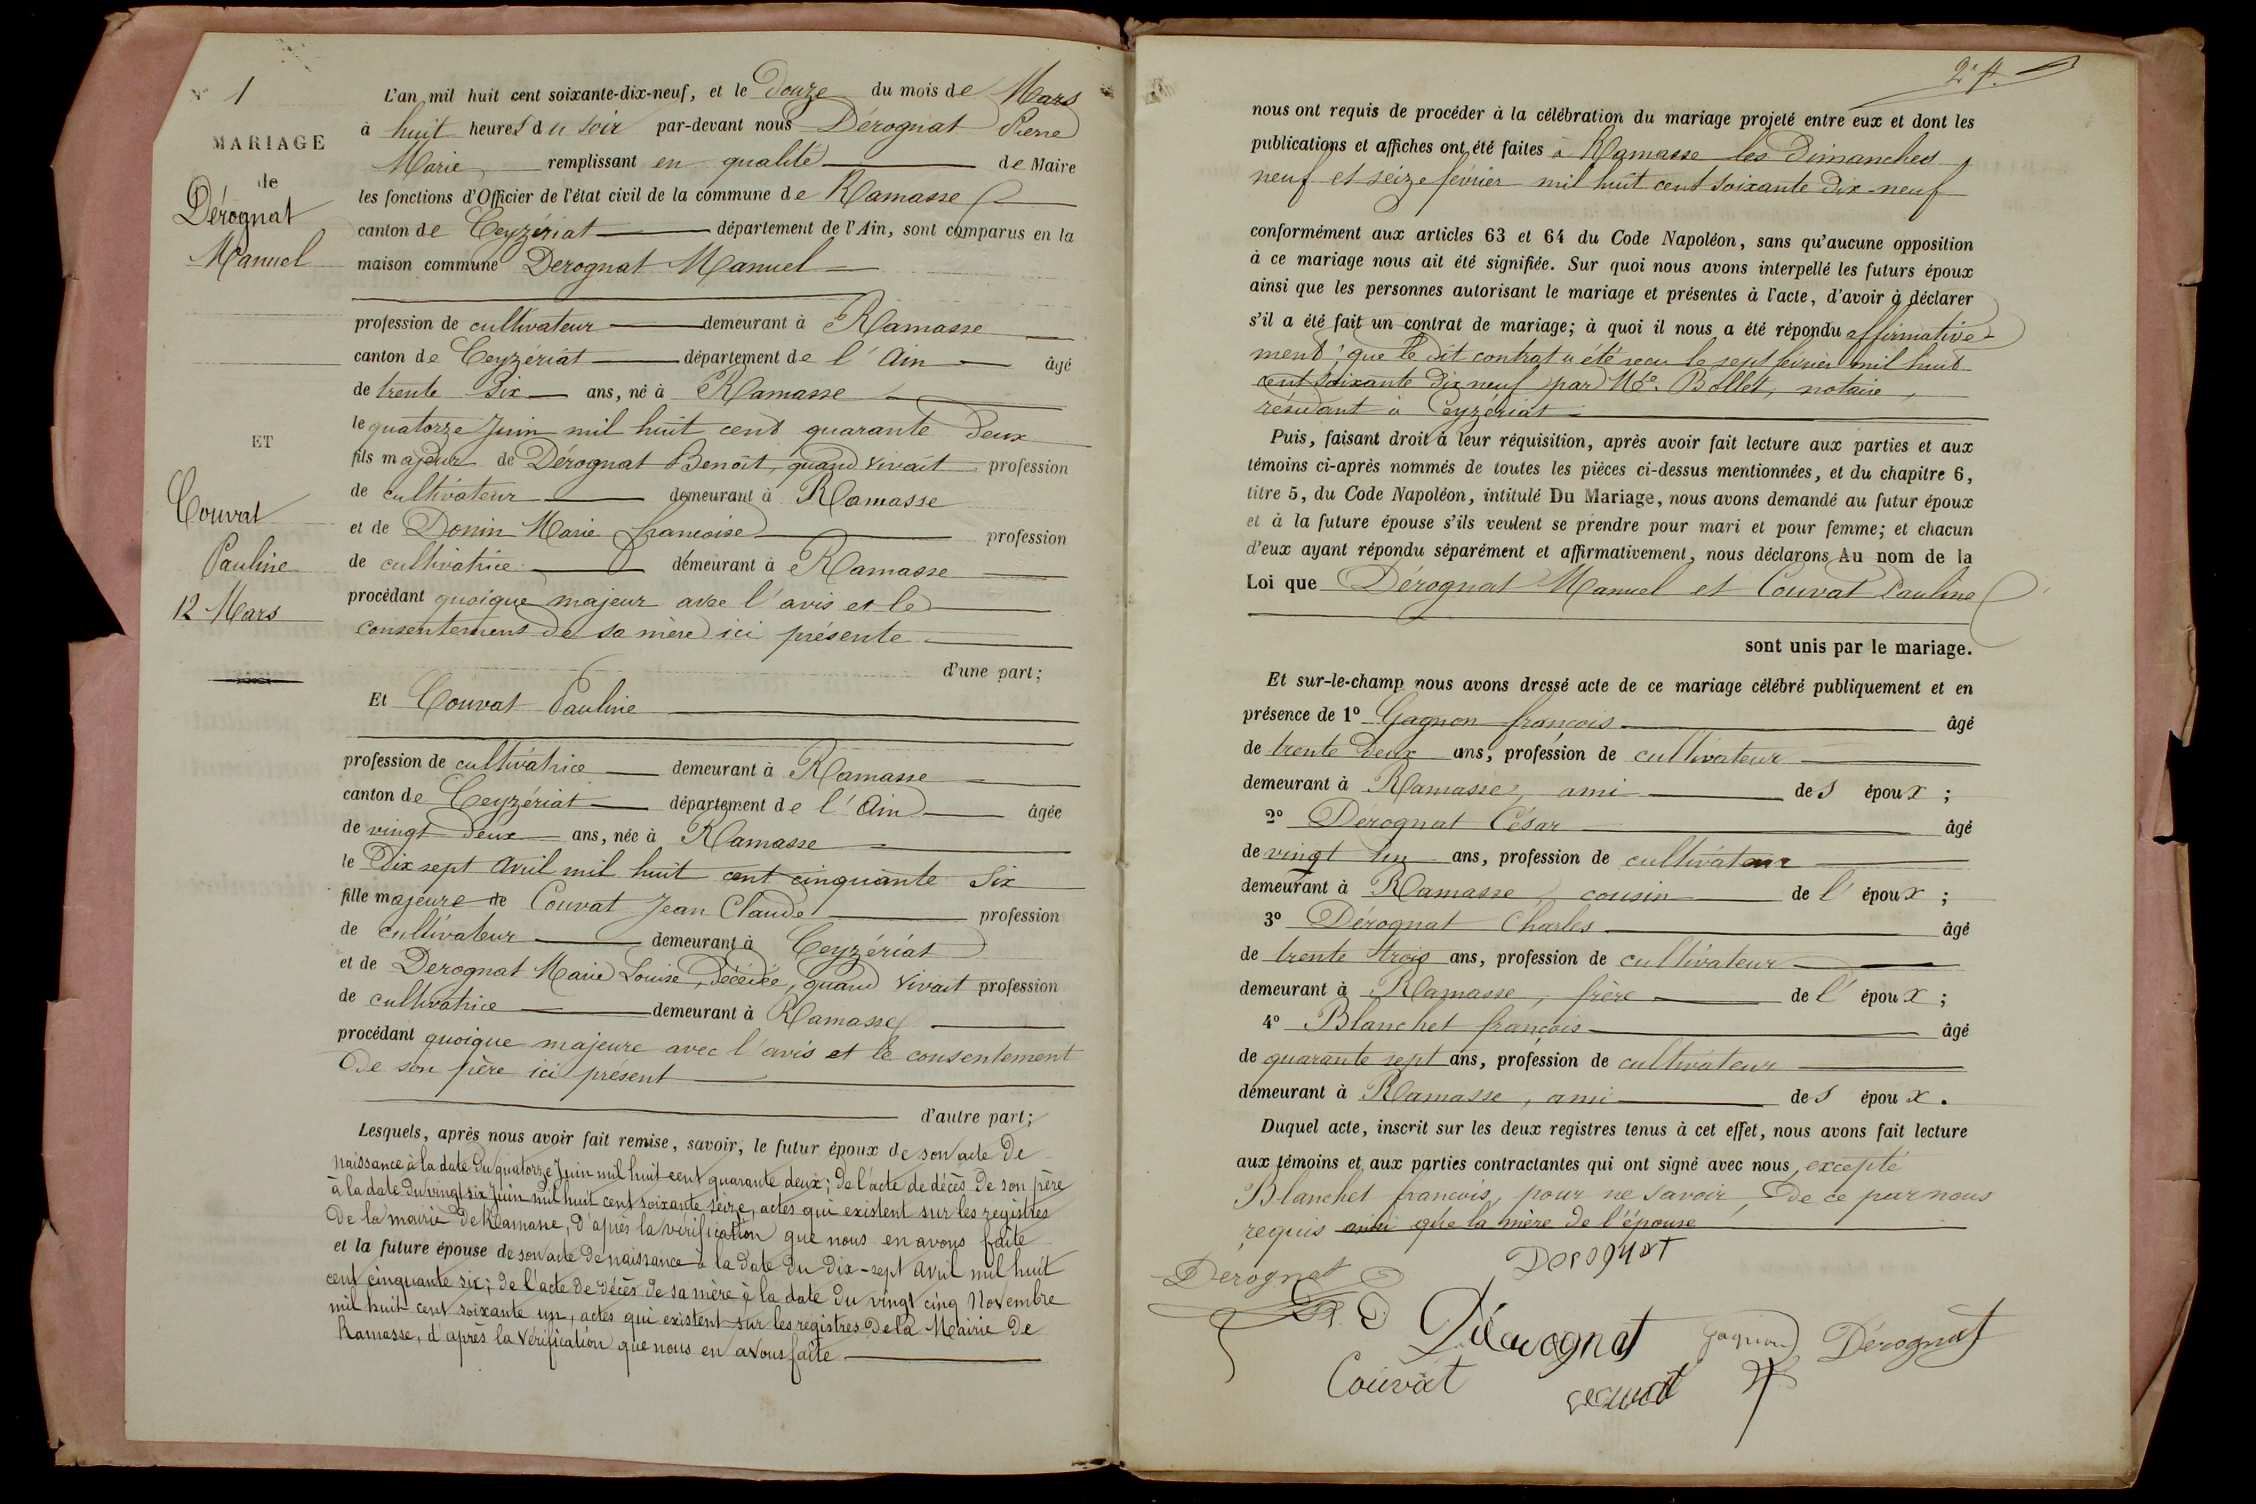 N° 1
MARIAGE
de
Dérognat
Manuel
ET
Couvat
Pauline
12 Mars
L'an mil huit cent soixante-dix-neuf, et le Douze du mois de Mars
à huit heures du soir par-devant nous Dérognat Pierre
Marie, remplissant en qualité de Maire
les fonctions d'Officier de l'état civil de la commune de Ramasse
canton de Ceyzériat département de l'Ain, sont comparus en la
maison commune Derognat Manuel
profession de cultivateur demeurant à Ramasse
canton de Ceyzériat département de l'Ain âgé
de trente six ans, né à Ramasse
le quatorze Juin mil huit cent quarante Deux
fils majeur de Dérognat Benoît, quand vivait profession
de cultivateur demeurant à Ramasse
et de Donin Marie françoise profession
de cultivatrice demeurant à Ramasse
procédant quoique majeur avec l'avis et le
consentement de sa mère ici présente
d'une part;
Et Couvat Pauline
profession de cultivatrice demeurant à Ramasse
canton de Ceyzériat département de l'Ain âgée
de vingt deux ans, née à Ramasse
le Dix sept avril mil huit cent cinquante Six
fille majeure de Couvat Jean Claude profession
de cultivateur demeurant à Ceyzériat
et de Derognat Marie Louise, Décédée, quand vivait profession
de cultivatrice demeurant à Ramasse
procédant quoique majeure avec l'avis et le consentement
De son père ici présent
d'autre part;
Lesquels, après nous avoir fait remise, savoir, le futur époux de son acte De
naissance à la date Du quatorze Juin mil huit cent quarante deux; De l'acte de décès De son père
à la date Du vingt six Juin mil huit cent soixante seize, actes qui existent sur les registres
De la mairie De Ramasse, D'après la vérification que nous en avons faite
et la future épouse de son acte De naissance à la date Du Dix-sept avril mil huit
cent cinquante six; De l'acte De décès De sa mère à la date Du vingt cinq Novembre
mil huit cent soixante un, actes qui existent sur les registres De la Mairie De
Ramasse, d'après la vérification que nous en avons faite
2e f.
nous ont requis de procéder à la célébration du mariage projeté entre eux et dont les
publications et affiches ont été faites à Ramasse les Dimanches
neuf et seize février mil huit cent soixante Dix-neuf
conformément aux articles 63 et 64 du Code Napoléon, sans qu'aucune opposition
à ce mariage nous ait été signifiée. Sur quoi nous avons interpellé les futurs époux
ainsi que les personnes autorisant le mariage et présentes à l'acte, d'avoir à déclarer
s'il a été fait un contrat de mariage; à quoi il nous a été répondu affirmative-
ment; que le Dit contrat a été reçu le sept février mil huit
cent soixante Dix neuf par Me. Bollet, notaire,
résidant à Ceyzériat
Puis, faisant droit à leur réquisition, après avoir fait lecture aux parties et aux
témoins ci-après nommés de toutes les pièces ci-dessus mentionnées, et du chapitre 6,
titre 5, du Code Napoléon, intitulé Du Mariage, nous avons demandé au futur époux
et à la future épouse s'ils veulent se prendre pour mari et pour femme; et chacun
d'eux ayant répondu séparément et affirmativement, nous déclarons Au nom de la
Loi que Dérognat Manuel et Couvat Pauline
sont unis par le mariage.
Et sur-le-champ nous avons dressé acte de ce mariage célébré publiquement et en
présence de 1° Gagnon françois âgé
de trente Deux ans, profession de cultivateur
demeurant à Ramasse, ami des époux;
2° Dérognat César âgé
de vingt un ans, profession de cultivateur
demeurant à Ramasse, cousin de l'époux;
3° Dérognat Charles âgé
de trente trois ans, profession de cultivateur
demeurant à Ramasse, frère de l'époux;
4° Blanchet françois âgé
de quarante sept ans, profession de cultivateur
demeurant à Ramasse, ami des époux.
Duquel acte, inscrit sur les deux registres tenus à cet effet, nous avons fait lecture
aux témoins et aux parties contractantes qui ont signé avec nous, excepté
Blanchet francois, pour ne savoir, De ce par nous
requis ainsi que la mère De l'épouse
Derognat
Derognat
Dérognat
Gagnon
Dérognat
Couvat
couvat